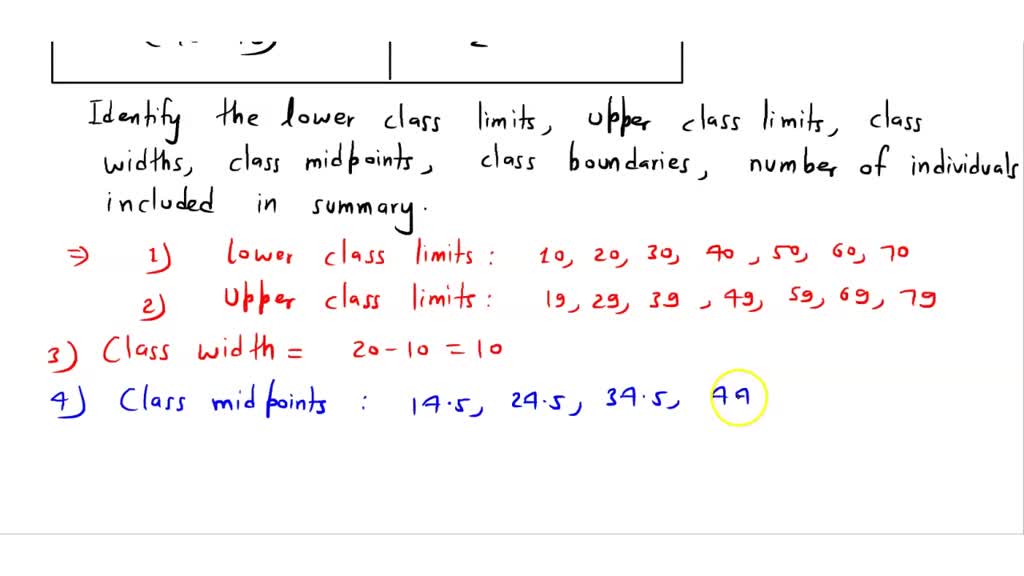 2
Identify the lower class limits, upper class limits, class
widths, class midpoints, class boundaries, number of individuals
included in summary.
⇒ 1) Lower class limits: 10, 20, 30, 40, 50, 60, 70
2) Upper class limits: 19, 29, 39, 49, 59, 69, 79
3) Class width = 20-10 = 10
4) Class midpoints: 14.5, 24.5, 34.5, 44